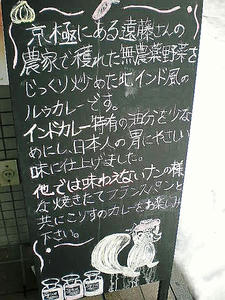 京極にある遠藤さんの
農家で穫れた無農薬野菜を
じっくり炒めた北インド風の
ルゥカレーです。
インドカレー特有の油分を少な
めにし、日本人の胃にやさしい
味に仕上げました。
他では味わえないナンの様
な焼きたてフランスパンと
共にこりすのカレーをお楽しみ
下さい。